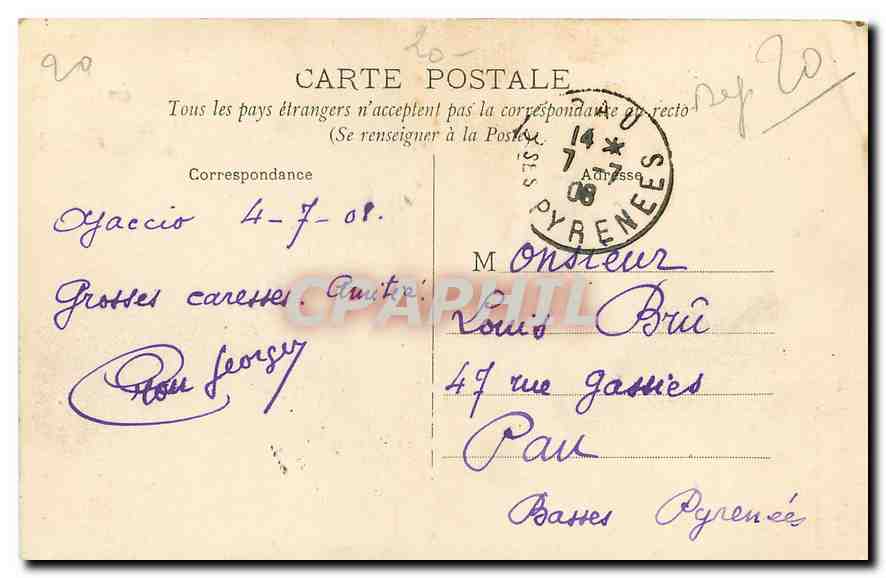 20
20-
20
CARTE POSTALE
Tous les pays étrangers n'acceptent pas la correspondance au recto
(Se renseigner à la Poste)
PAU
14 *
7 -7
08
BSES PYRENEES
Correspondance
Adresse
Ajaccio 4-7-08.
Grosses caresses. Amitié.
Georges
CPAPHIL
Monsieur
Louis Brû
47 rue Gassies
Pau
Basses Pyrenées